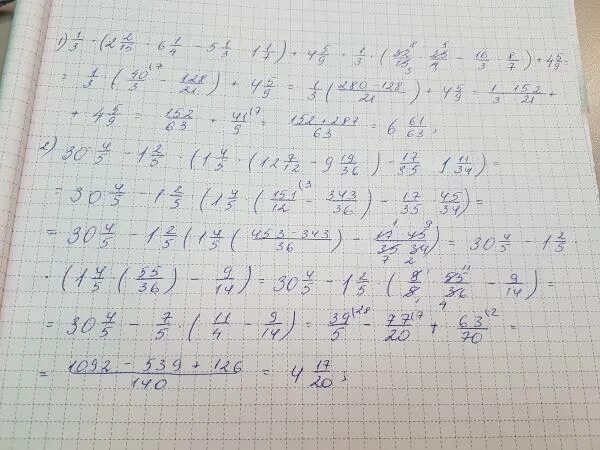 1) 1/3 · (2 2/15 · 6 1/4 - 5 1/3 · 1 1/7) + 4 5/9 = 1/3 · (32/15 · 25/4 - 16/3 · 8/7) + 4 5/9 =
= 1/3 (40/3 (7 - 128/21) + 4 5/9 = 1/3 (280-128/21) + 4 5/9 = 1/3 · 152/21 +
+ 4 5/9 = 152/63 + 41/9 (7 = 152+287/63 = 6 61/63;
2) 30 4/5 - 1 2/5 · (1 4/5 · (12 7/12 - 9 19/36) - 17/35 · 1 11/34) =
= 30 4/5 - 1 2/5 (1 4/5 · (151/12 (3 - 343/36) - 17/35 · 45/34) =
= 30 4/5 - 1 2/5 (1 4/5 (453-343/36) - 17/35 · 45/34) = 30 4/5 - 1 2/5 ·
· (1 4/5 (55/36) - 9/14) = 30 4/5 - 1 2/5 · ( 55/36 - 9/14) =
= 30 4/5 - 7/5 · (11/4 - 9/14) = 39/5 (28 - 77/20 (7 + 63/70 (2 =
= 1092 - 539 + 126/140 = 4 17/20;